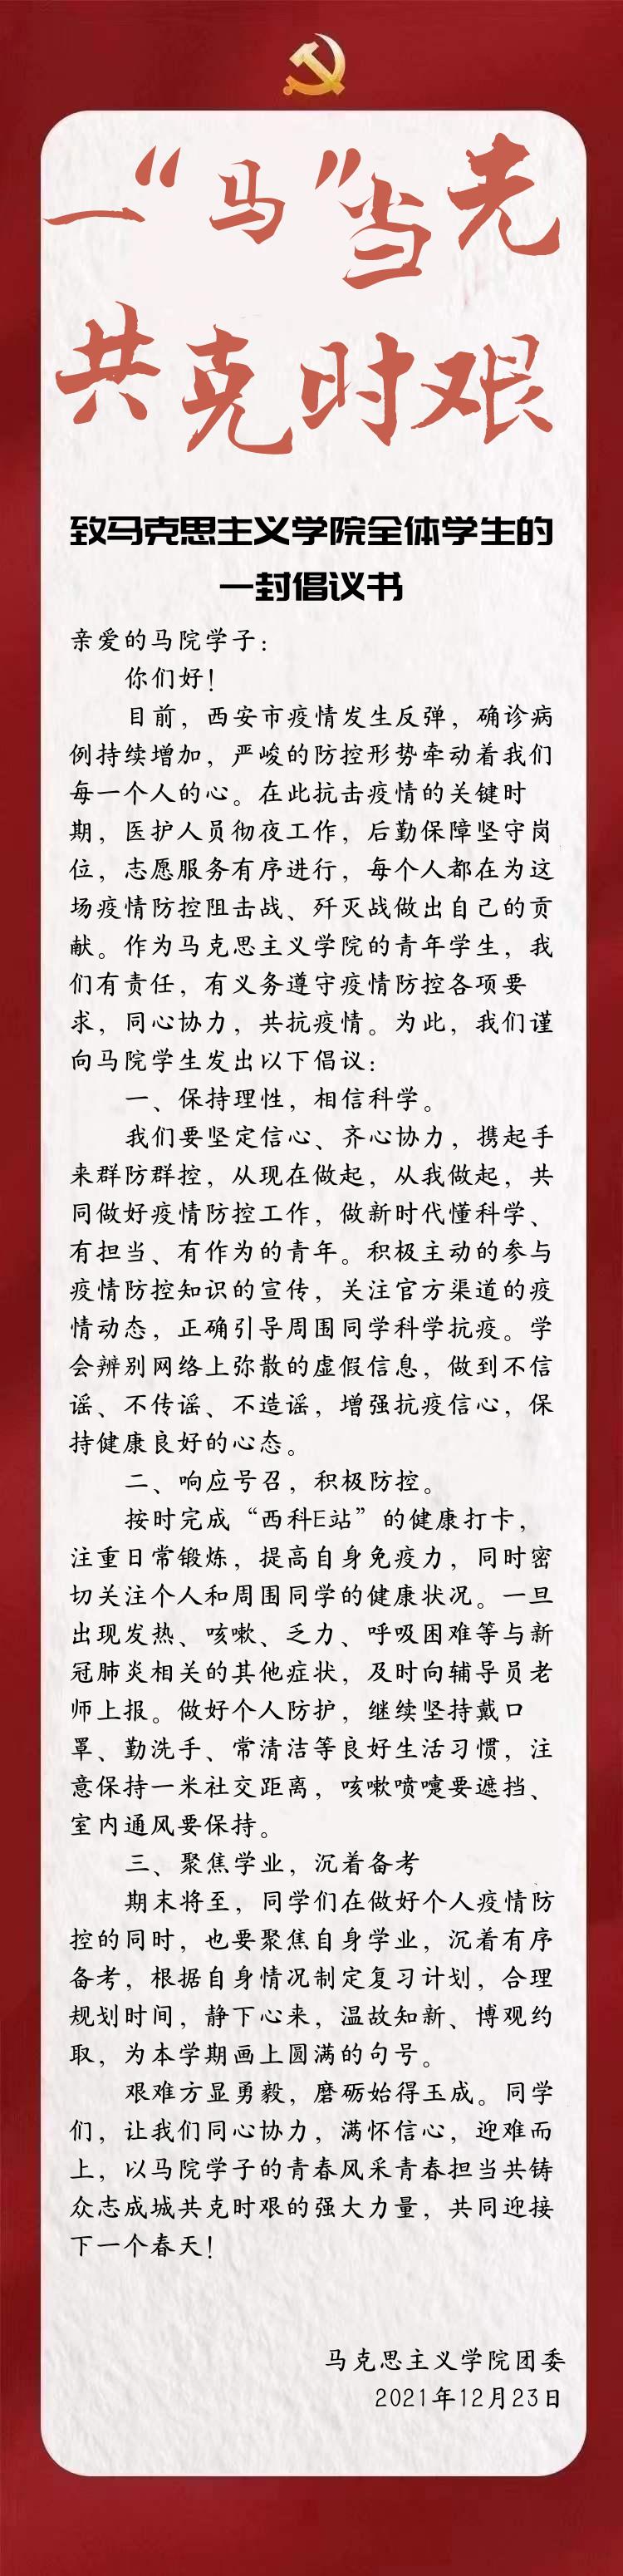 一“马”当先
共克时艰
致马克思主义学院全体学生的
一封倡议书
亲爱的马院学子：
你们好！
目前，西安市疫情发生反弹，确诊病
例持续增加，严峻的防控形势牵动着我们
每一个人的心。在此抗击疫情的关键时
期，医护人员彻夜工作，后勤保障坚守岗
位，志愿服务有序进行，每个人都在为这
场疫情防控阻击战、歼灭战做出自己的贡
献。作为马克思主义学院的青年学生，我
们有责任，有义务遵守疫情防控各项要
求，同心协力，共抗疫情。为此，我们谨
向马院学生发出以下倡议：
一、保持理性，相信科学。
我们要坚定信心、齐心协力，携起手
来群防群控，从现在做起，从我做起，共
同做好疫情防控工作，做新时代懂科学、
有担当、有作为的青年。积极主动的参与
疫情防控知识的宣传，关注官方渠道的疫
情动态，正确引导周围同学科学抗疫。学
会辨别网络上弥散的虚假信息，做到不信
谣、不传谣、不造谣，增强抗疫信心，保
持健康良好的心态。
二、响应号召，积极防控。
按时完成“西科E站”的健康打卡，
注重日常锻炼，提高自身免疫力，同时密
切关注个人和周围同学的健康状况。一旦
出现发热、咳嗽、乏力、呼吸困难等与新
冠肺炎相关的其他症状，及时向辅导员老
师上报。做好个人防护，继续坚持戴口
罩、勤洗手、常清洁等良好生活习惯，注
意保持一米社交距离，咳嗽喷嚏要遮挡、
室内通风要保持。
三、聚焦学业，沉着备考
期末将至，同学们在做好个人疫情防
控的同时，也要聚焦自身学业，沉着有序
备考，根据自身情况制定复习计划，合理
规划时间，静下心来，温故知新、博观约
取，为本学期画上圆满的句号。
艰难方显勇毅，磨砺始得玉成。同学
们，让我们同心协力，满怀信心，迎难而
上，以马院学子的青春风采青春担当共铸
众志成城共克时艰的强大力量，共同迎接
下一个春天！
马克思主义学院团委
2021年12月23日